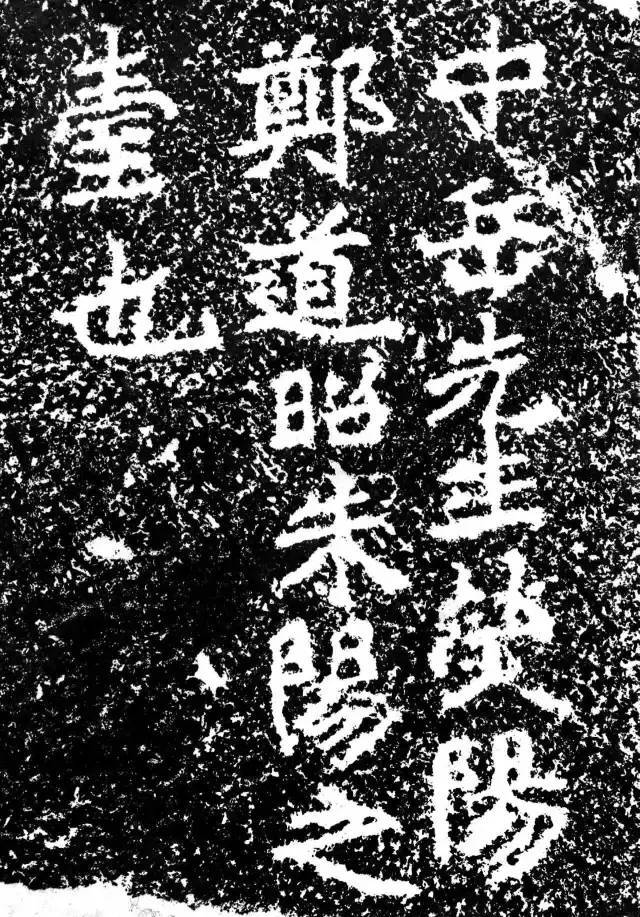 中岳先生熒陽
鄭道昭朱陽之
臺也